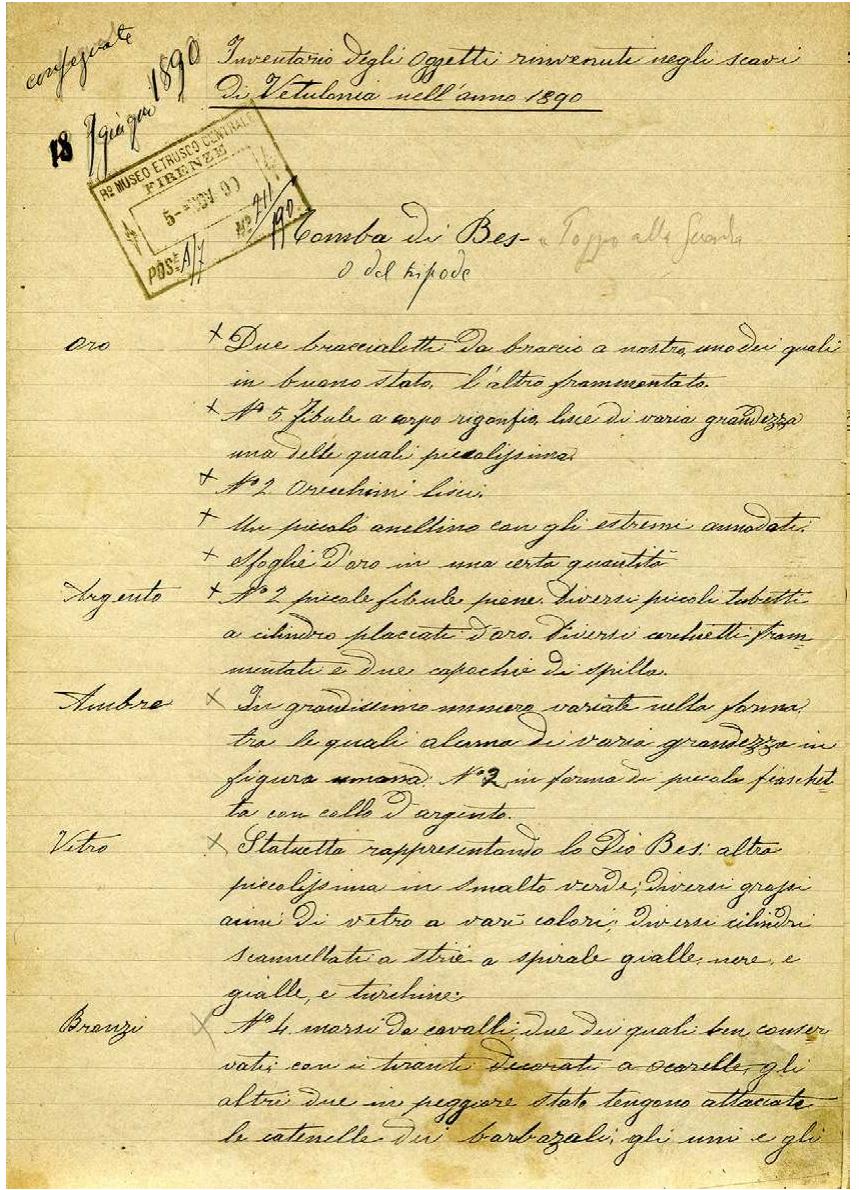 consegnate
18 giugno 1890
Inventario degli oggetti rinvenuti negli scavi
di Vetulonia nell'anno 1890
Rº MUSEO ETRUSCO CENTRALE
FIRENZE
5 - NOV 90
POSE A/7 Nº 211/190
Tomba di Bes - o Poggio alla Guardia
o del tripode
Oro
× Due braccialetti da braccio a nastro, uno dei quali
in buono stato, l'altro frammentato.
× Nº 5 fibule a corpo rigonfio, lisce di varia grandezza
una delle quali piccolissima.
× Nº 2 Orecchini lisci.
× Un piccolo anellino con gli estremi annodati.
× Sfoglie d'oro in una certa quantità
Argento × Nº 2 piccole fibule piene. Diversi piccoli tubetti
a cilindro placcati d'oro. Diversi cerchietti fram=
mentati e due capocchie di spillo.
Ambre × In grandissimo numero variate nella forma
tra le quali alcuna di varia grandezza in
figura umana. Nº 2 in forma di piccola fiaschet=
ta con collo d'argento.
Vetro × Statuetta rappresentando lo Dio Bes: altra
piccolissima in smalto verde; diversi grossi
acini di vetro a vari colori; diversi cilindri
scannellati a strie a spirale gialle, nere, e
gialle, e turchine.
Bronzi × Nº 4 morsi da cavalli, due dei quali ben conser
vati; con i tiranti decorati a ocarelle, gli
altri due in peggiore stato tengono attaccate
le catenelle dei barbazali; gli uni e gli